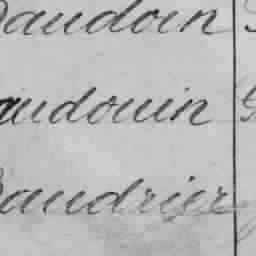 Baudoin
Baudouin
Baudrier